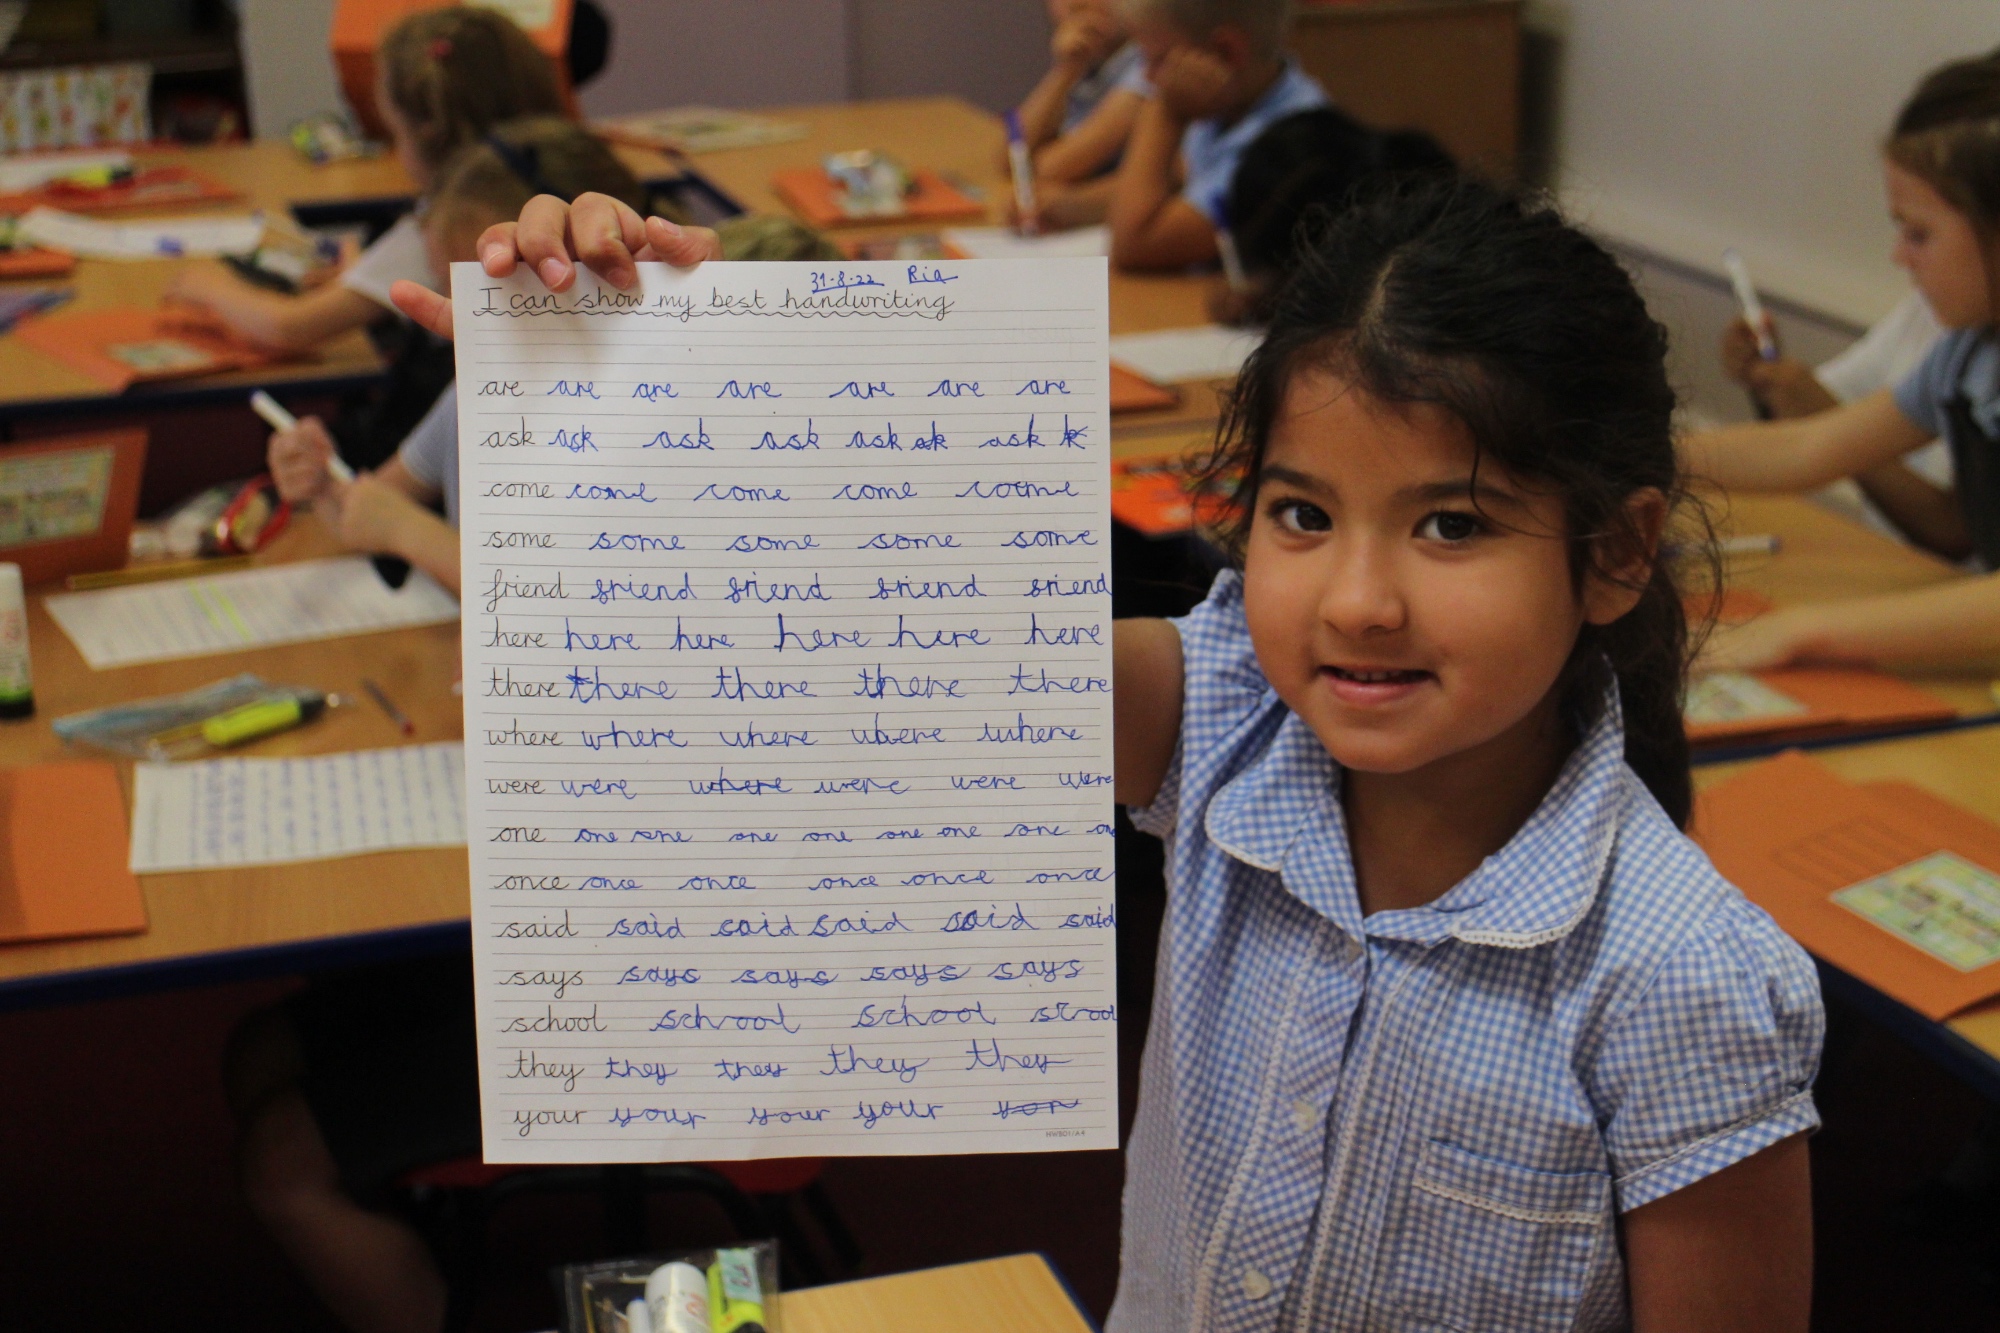 31-8-22 Ria
I can show my best handwriting
are are are are are are are
ask ask ask ask ask ask k
come come come come come
some some some some some
friend friend friend friend friend
here here here here here here
there there there there there
where where where where where
were were where were were were
one one one one one one one one on
once once once once once once
said said said said said said
says says says says says
school school school scool
they they they they they
your your your your yor
HW801/A4